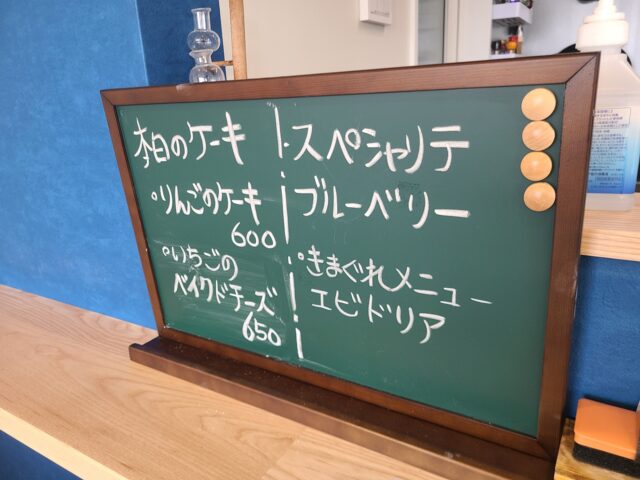 本日のケーキ
・りんごのケーキ
600
・いちごの
ベイクドチーズ
650
・スペシャリテ
ブルーベリー
・きまぐれメニュー
エビドリア